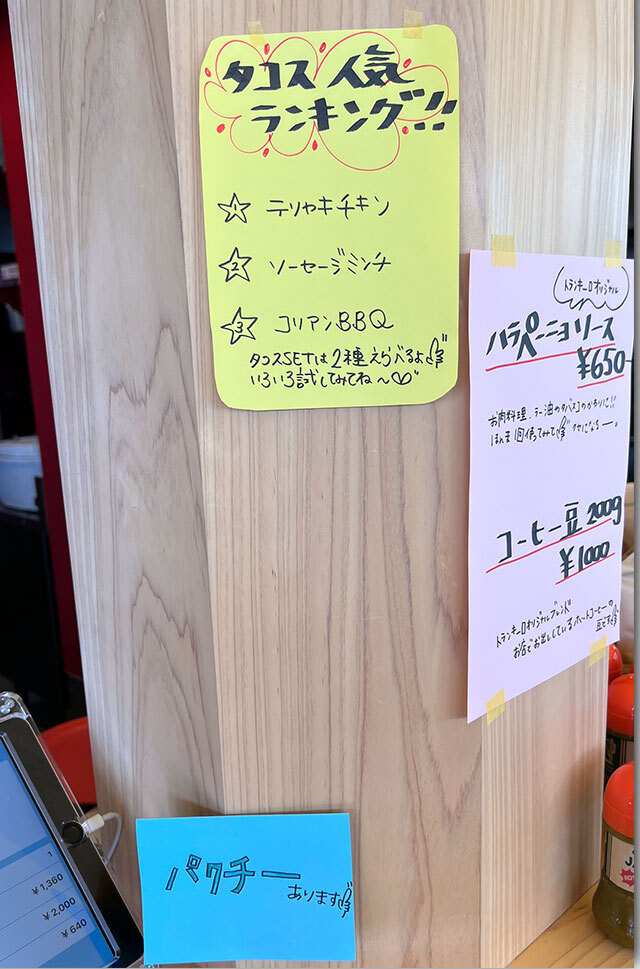 タコス人気
ランキング!!
1 テリヤキチキン
2 ソーセージミンチ
3 コリアンBBQ
タコスSETは2種えらべるよ
いろいろ試してみてね～♡
トランキーロオリジナル
ハラペーニョソース
¥650-
お肉料理、ラー油やタバスコのかわりに!!
ほんま1回使ってみて クセになるー。
コーヒー豆 200g
¥1000
トランキーロオリジナルブレンド
お店でお出ししているホットコーヒーの
豆です
パクチー
あります
1
¥1,360
¥2,000
¥640